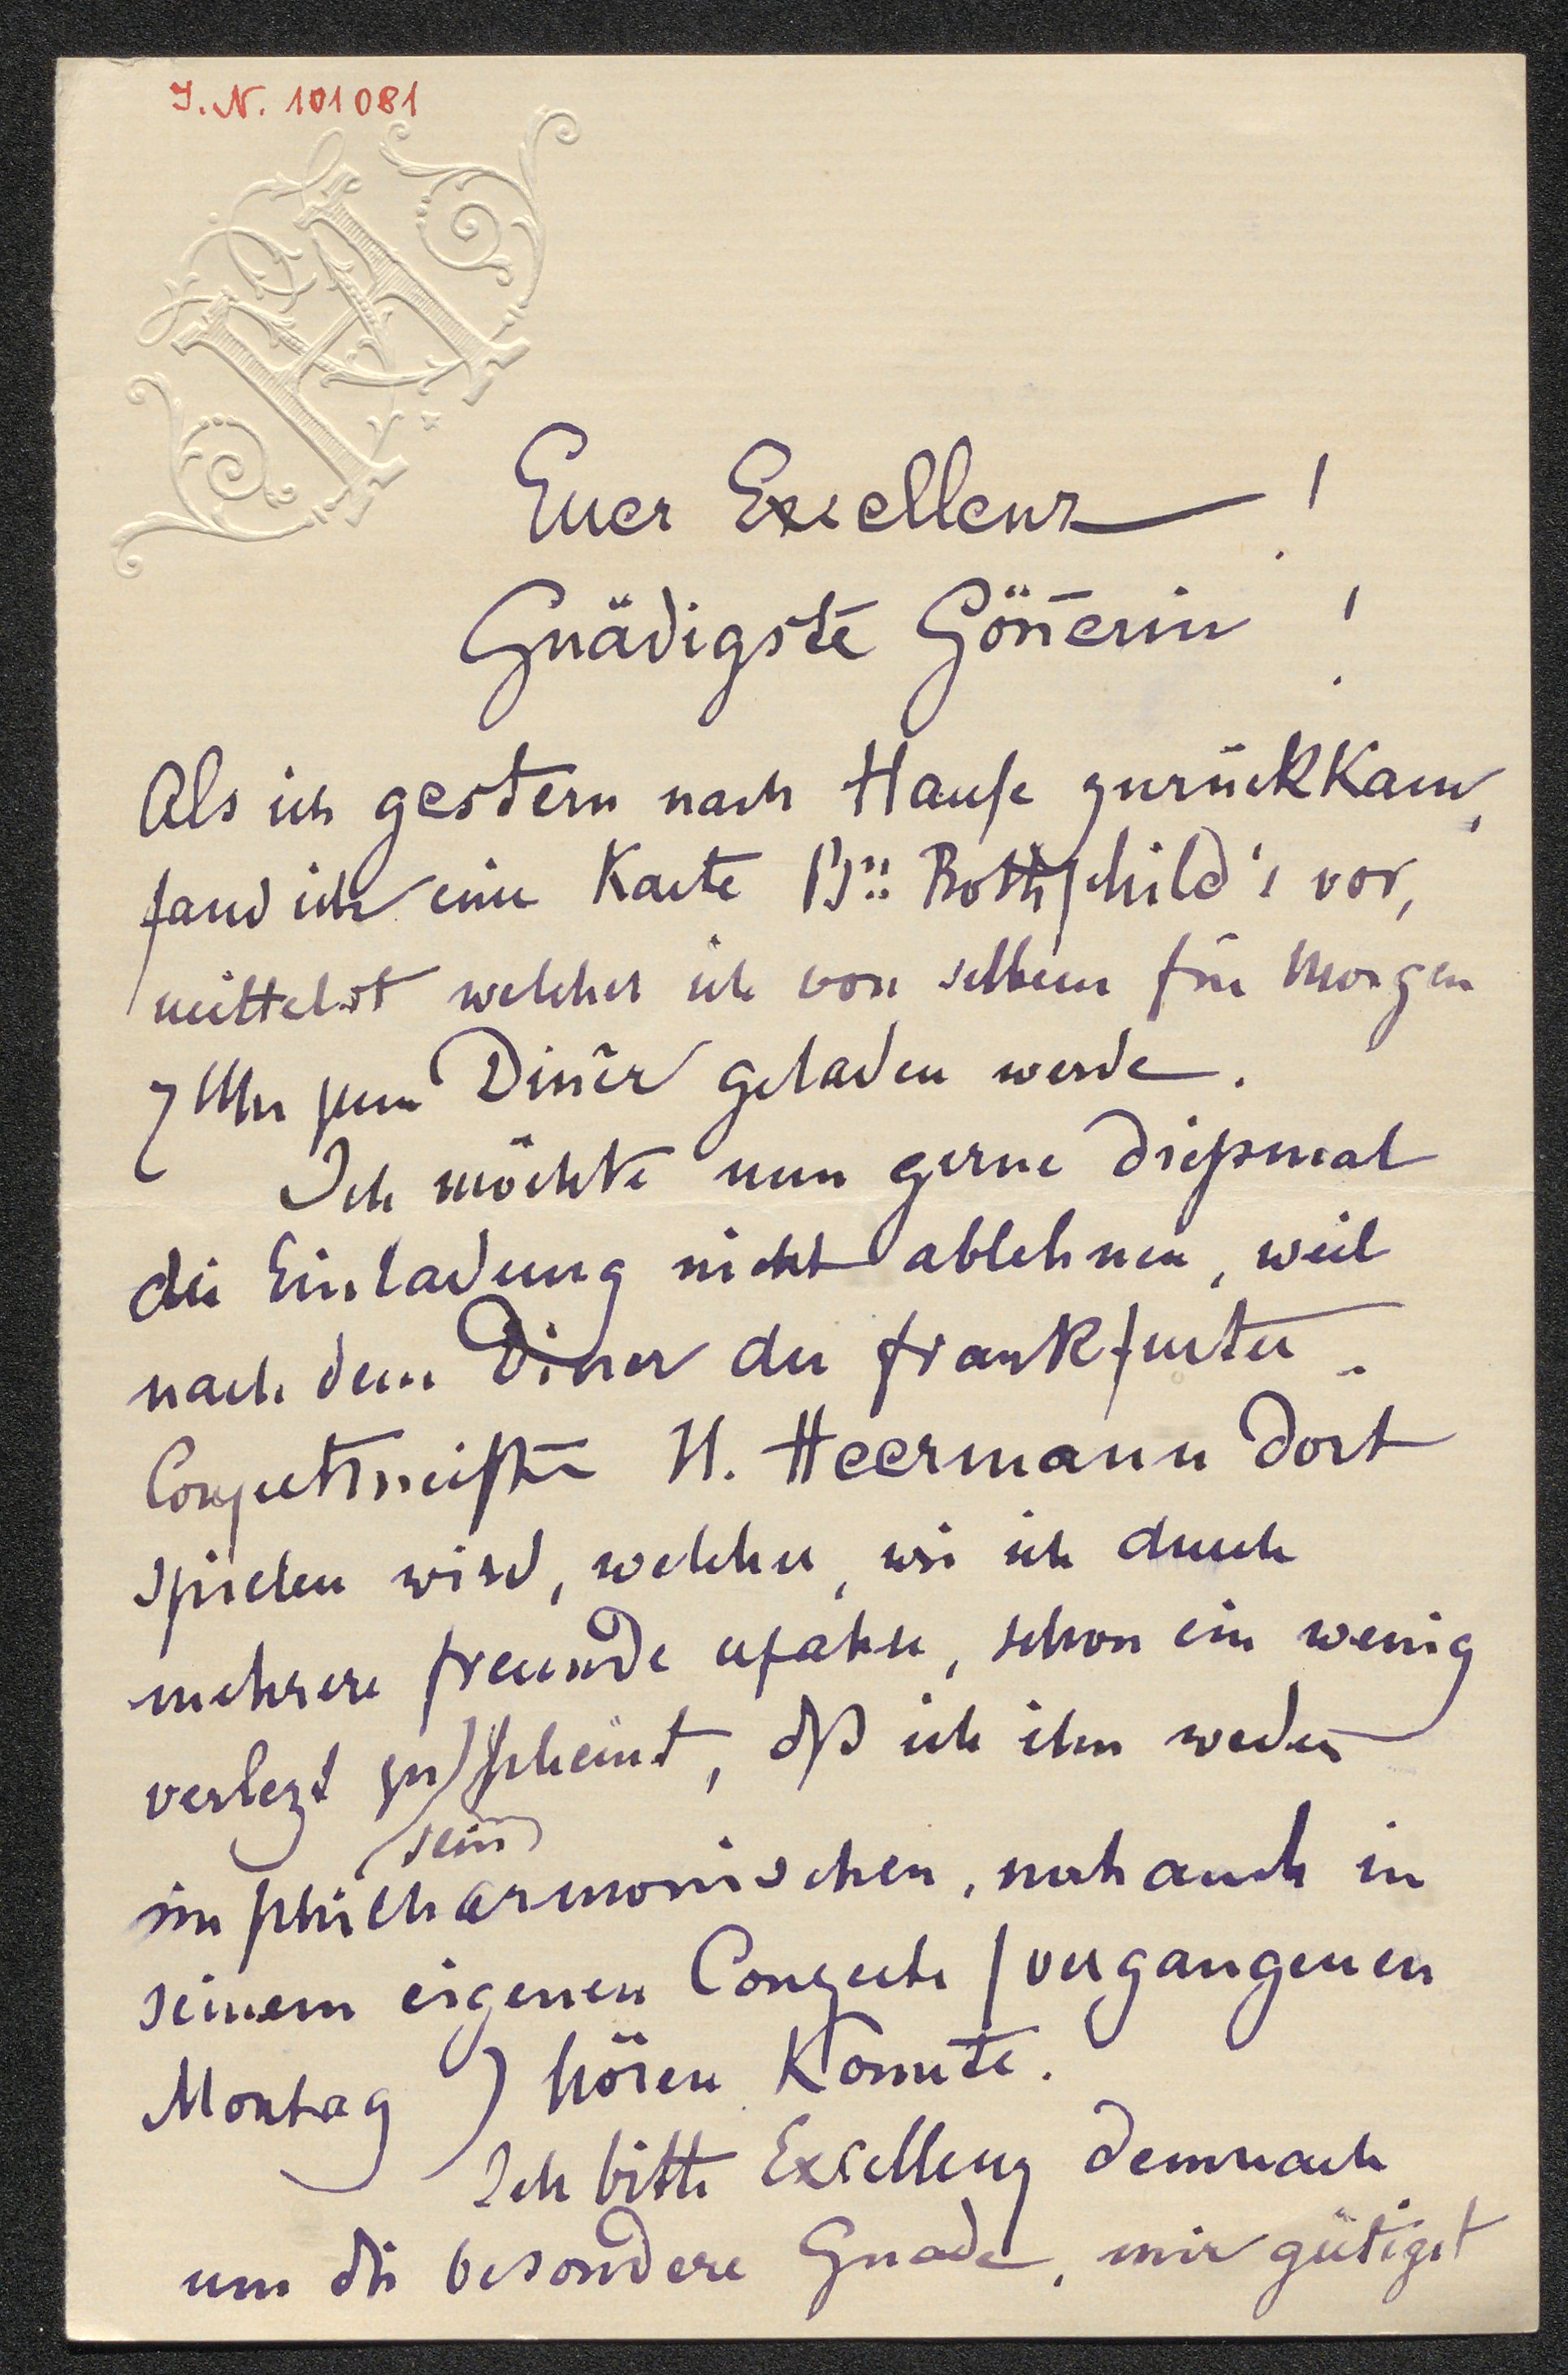 I.N. 101081
Euer Excellenz!
Gnädigste Göñerin!
Als ich gestern nach Hause zurückkam,
fand ich eine Karte Bn: Rothschild's vor,
mittelst welcher ich von selbem für Morgen
7 Uhr zum Diner geladen werde.
Ich möchte nun gerne dießmal
die Einladung nicht ablehnen, weil
nach dem Diner der frankfurter
Conzertmeister H. Heermann dort
spielen wird, welcher, wie ich durch
mehrere freunde erfahre, schon ein wenig
verlezt zu sein scheint, dß ich ihn weder
im philharmonischen, noch auch in
seinem eigenen Conzerte (vergangenen
Montag) hören konnte.
Ich bitte Excellenz demnach
um die besondere Gnade, mir gütigst